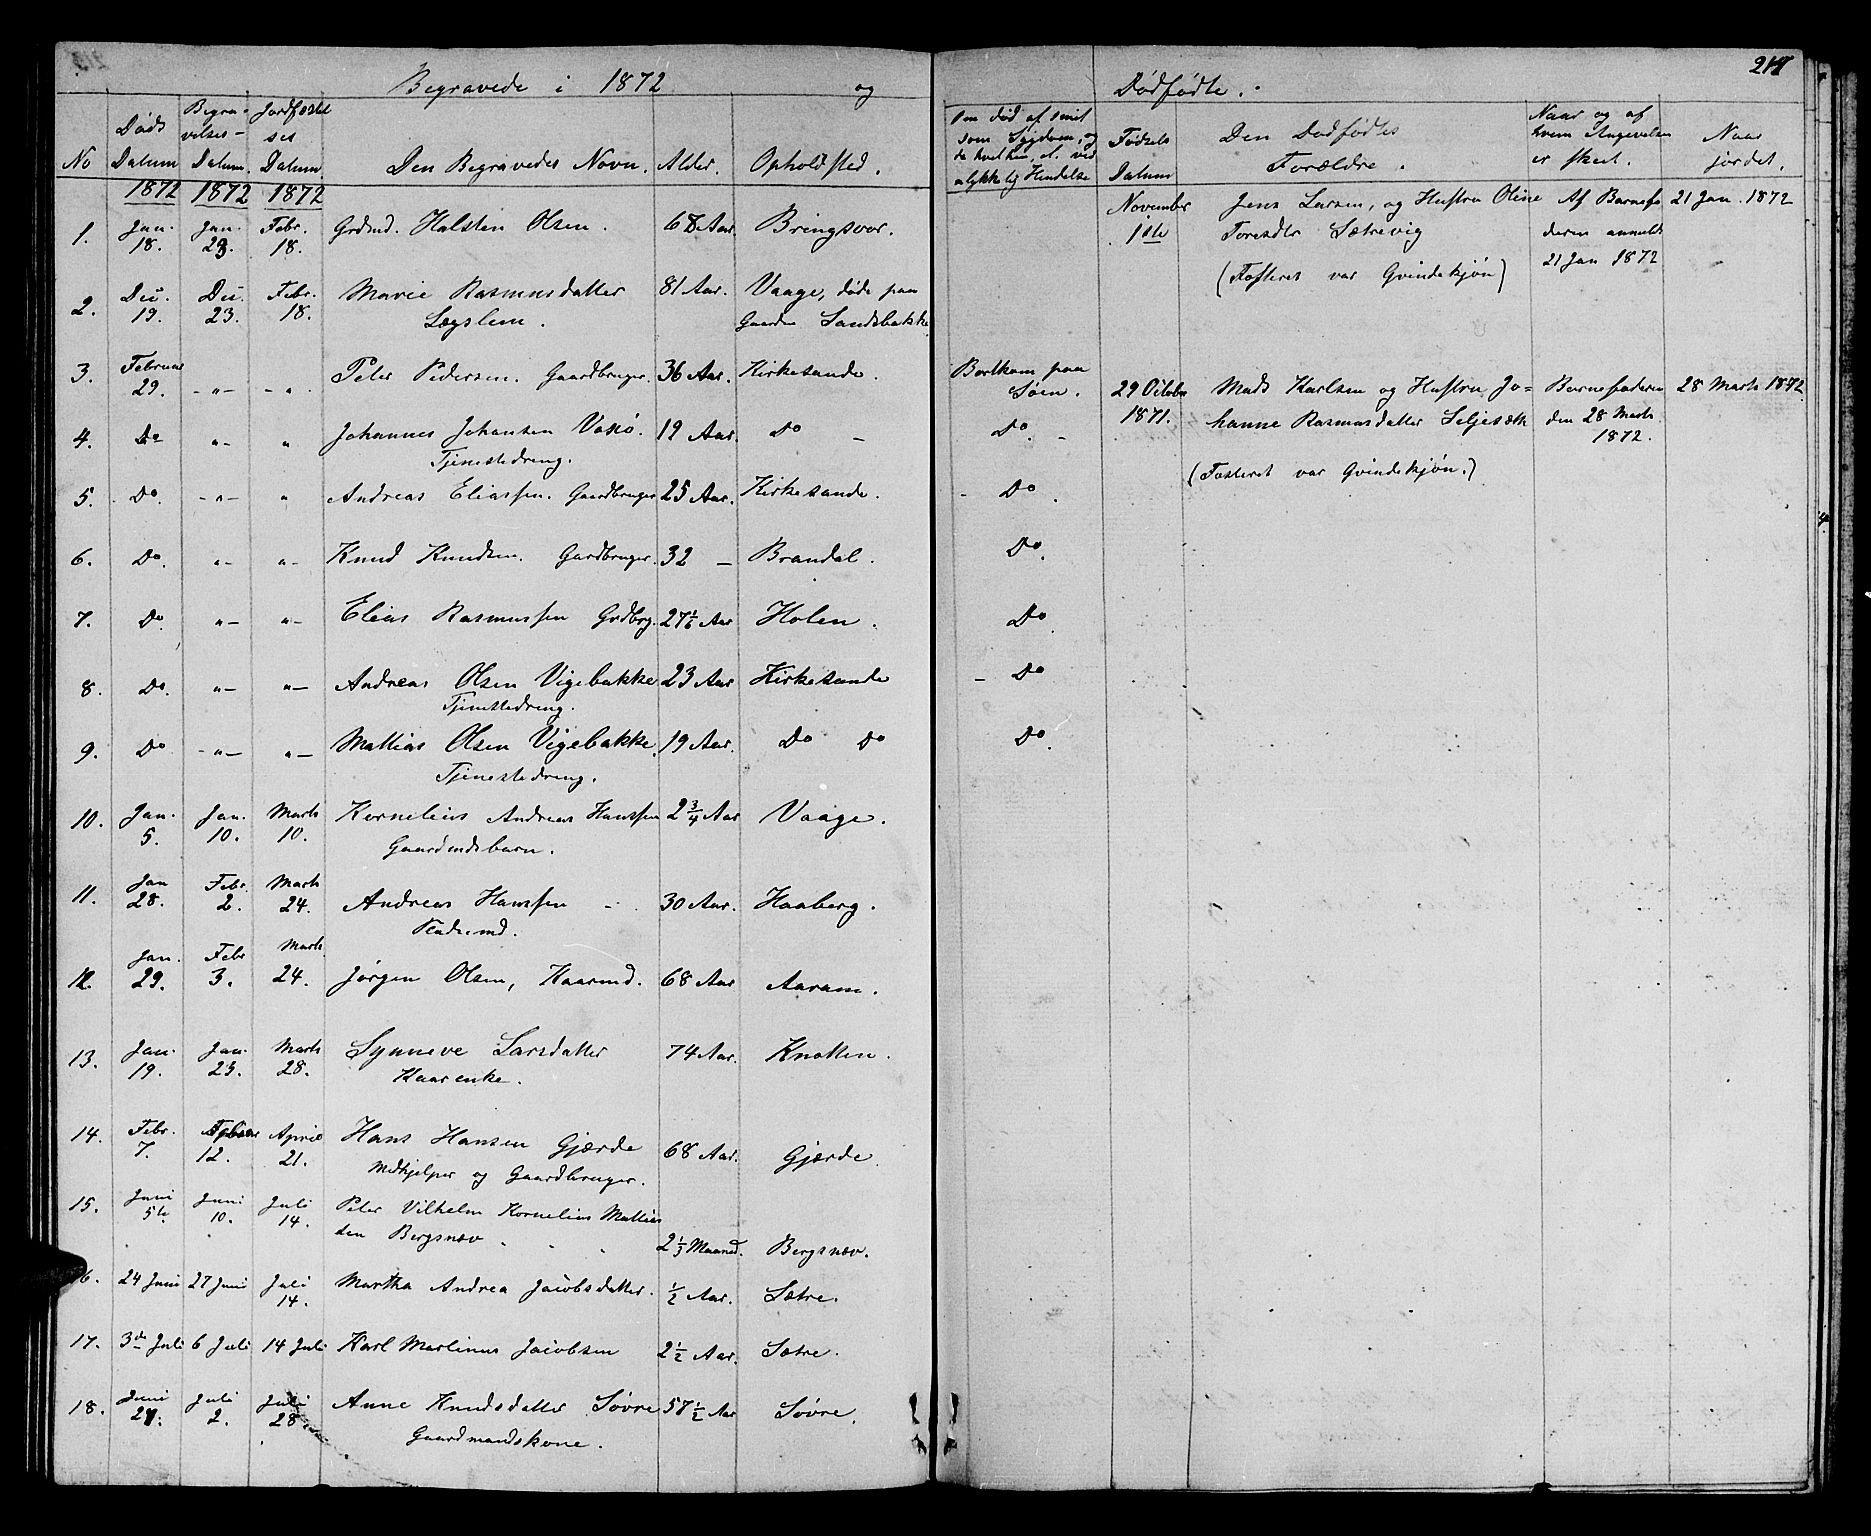 Begravede i 1872 og
Dødfødte.
217
No
Døds Datum
Begravelses- Datum.
Jordfæstelses Datum.
Den Begravedes Navn.
Alder.
Opholdsted.
Om død af smit
som Sygdom, og
da hvilken, el. ved
ulykkelig Hendelse
Fødsels Datum
Den Dødfødtes Forældre.
Naar og af
hvem Angivelsen
er skeet.
Naar jordet.
1872 1872 1872
1. Jan. 18. Jan. 23. Febr. 18. Grdmd. Halsten Olsen. 68 Aar. Bringsvor.
2. Du. 19. Du. 23. Febr. 18. Marie Rasmusdatter 81 Aar. Vaage, døde paa
Lægslem. Gaarden Sandsbakke.
3. Februar 29. - " - - " Peter Pedersen. Gaardbruger. 36 Aar. Kirkesande. Bortkom paa Søen.
4. Do - " - " Johannes Johansen Vaxø. 19 Aar. Do - Do. -
Tjenestedreng.
5. Do. - " - " Andreas Eliassen. Gaardbruger 25 Aar. Kirkesande. - Do.
6. Do. " - " - Knud Knudsen. Gardbruger. 32 - Brandal. Do.
7. Do. " - " - Elias Rasmussen Grdbrg. 27½ Aar Holen. Do.
8. Do. " - " - Andreas Olsen Vigebakke 23 Aar Kirkesande - Do
Tjenestedreng.
9. Do - " - " - Mattias Olsen Vigebakke. 19 Aar. Do Do Do.
Tjenestedreng.
10. Jan. 5. Jan. 10. Marts 10. Kornelius Andreas Hanssen 2¾ Aar Vaage.
Gaardmdsbarn.
11. Jan 28. Febr. 2. Marts 24. Andreas Hanssen 30 Aar. Haaberg.
Pladsemd.
12. Jan. 29. Febr 3. Marts 24. Jørgen Olsen, Kaarmd. 68 Aar Aaram.
13. Jan. 19. Jan. 23. Marts 28. Synneve Larsdatter 74 Aar. Knotten.
Kaarenke.
14. Febr. 7. 12. April 21. Hans Hansen Gjærde 68 Aar. Gjærde.
Medhjelper og Gaardbruger.
15. Juni 5te Juni 10. Juli 14. Peter Vilhelm Kornelius Mattias
den Bergsnæv 2⅓ Maaned. Bergsnæv.
16. 24 Juni 27 Juni Juli 14. Martha Andrea Jacobsdatter. ½ Aar. Sætre.
17. 3de Juli 6 Juli 14 Juli Karl Martinus Jacobsen 2½ Aar. Sætre.
18. Juni 27. Juli 2. Juli 28. Anne Knudsdatter Søvre 57½ Aar Søvre.
Gaardmandskone.
November 1ste
Jens Larsen, og Hustru Oline
Toresdtr Sætrevig
(Fosteret var Qvindekjøn)
Af Barnefa
deren anmeldt
21 Jan 1872
21 Jan. 1872
29 October 1871.
Mads Karlsen og Hustru Jo=
hanne Rasmusdatter Seljesæth
(Fosteret var Qvindekjøn.)
Barnefaderen
den 28 Marts
1872.
28 Marts 1872.